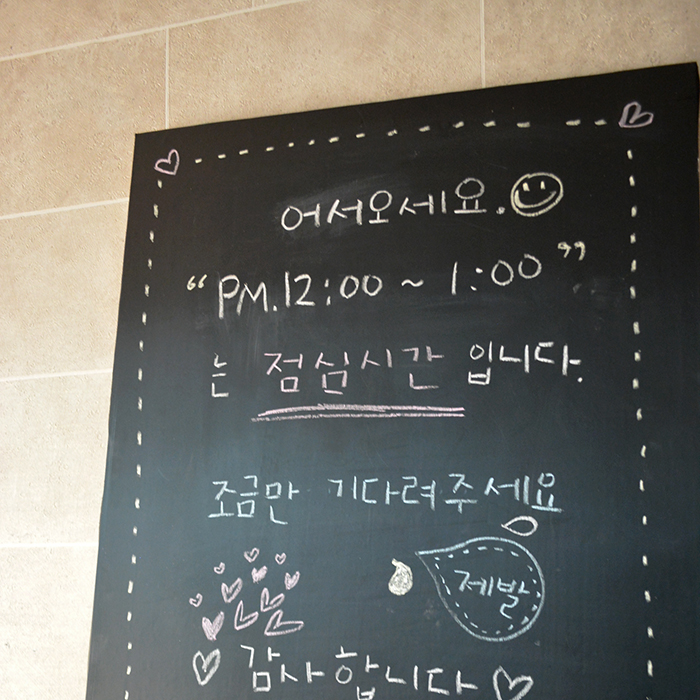 어서오세요.
“PM.12:00 ~ 1:00”
는 점심시간 입니다.
조금만 기다려주세요
제발
감사합니다